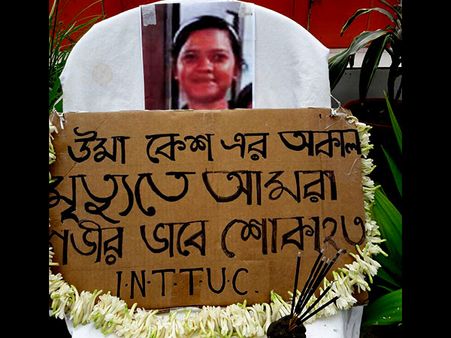 উমা কেশ এর অকাল
মৃত্যুতে আমরা
গভীর ভাবে শোকাহত
I.N.T.T.U.C.